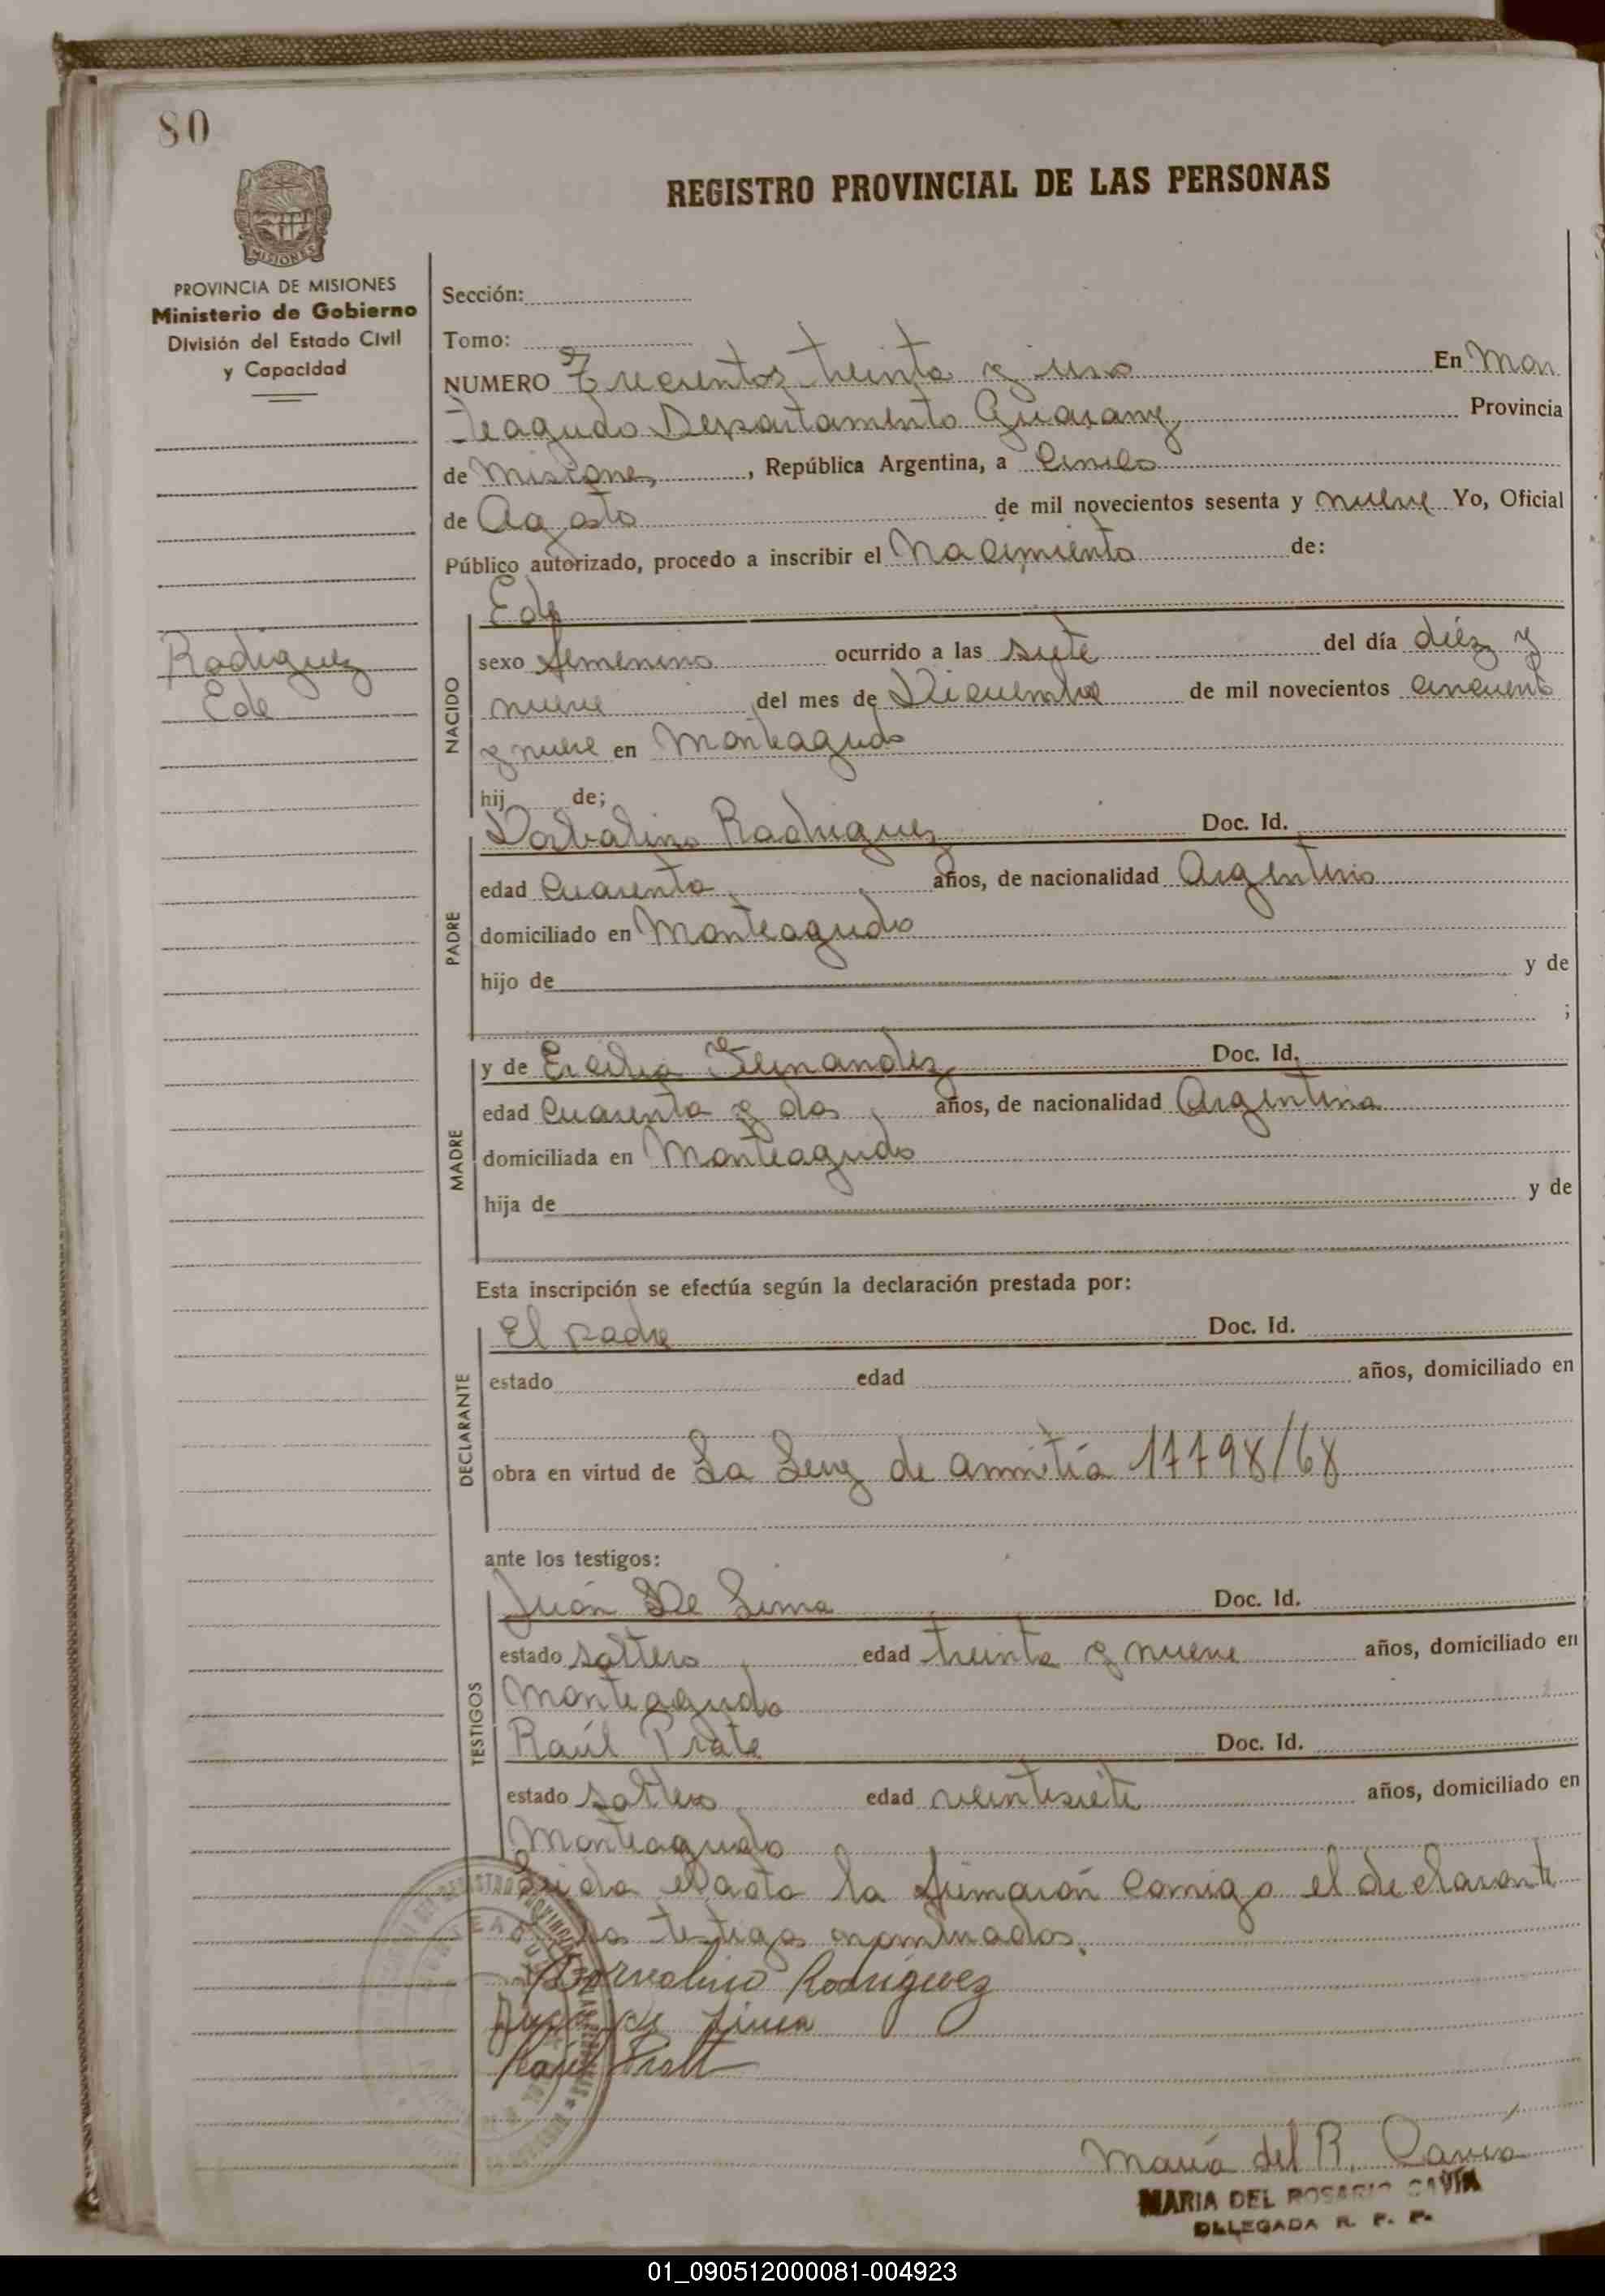 80
REGISTRO PROVINCIAL DE LAS PERSONAS
MISIONES
PROVINCIA DE MISIONES
Ministerio de Gobierno
División del Estado Civil
y Capacidad
Rodriguez
Ede
Sección:
Tomo:
NUMERO Trecientos treinta y uno En Mon
teagudo Departamento Guarany Provincia
de Misiones, República Argentina, a Cinco
de Agosto de mil novecientos sesenta y nueve Yo, Oficial
Público autorizado, procedo a inscribir el Nacimiento de:
NACIDO
Ede
sexo femenino ocurrido a las siete del día diéz y
nueve del mes de Diciembre de mil novecientos cincuenta
y nueve en Monteagudo
hij de;
PADRE
Dorvalino Rodriguez Doc. Id.
edad Cuarenta años, de nacionalidad Argentino
domiciliado en Monteagudo
hijo de y de
;
MADRE
y de Ercilia Fernandez Doc. Id.
edad Cuarenta y dos años, de nacionalidad Argentina
domiciliada en Monteagudo
hija de y de
Esta inscripción se efectúa según la declaración prestada por:
DECLARANTE
El padre Doc. Id.
estado edad años, domiciliado en
obra en virtud de La Ley de amnitía 17798/68
ante los testigos:
TESTIGOS
Juán De Lima Doc. Id.
estado soltero edad treinta y nueve años, domiciliado en
Monteagudo
Raúl Prate Doc. Id.
estado soltero edad veintisiete años, domiciliado en
Monteagudo
Leida el acta la firmarón comigo el declarante
los testigos nominados.
Dorvalino Rodriguez
Juan de Lima
Raúl Pratt
María del R. Cavia
MARIA DEL ROSARIO CAVIA
DELEGADA R. P. P.
01_090512000081-004923